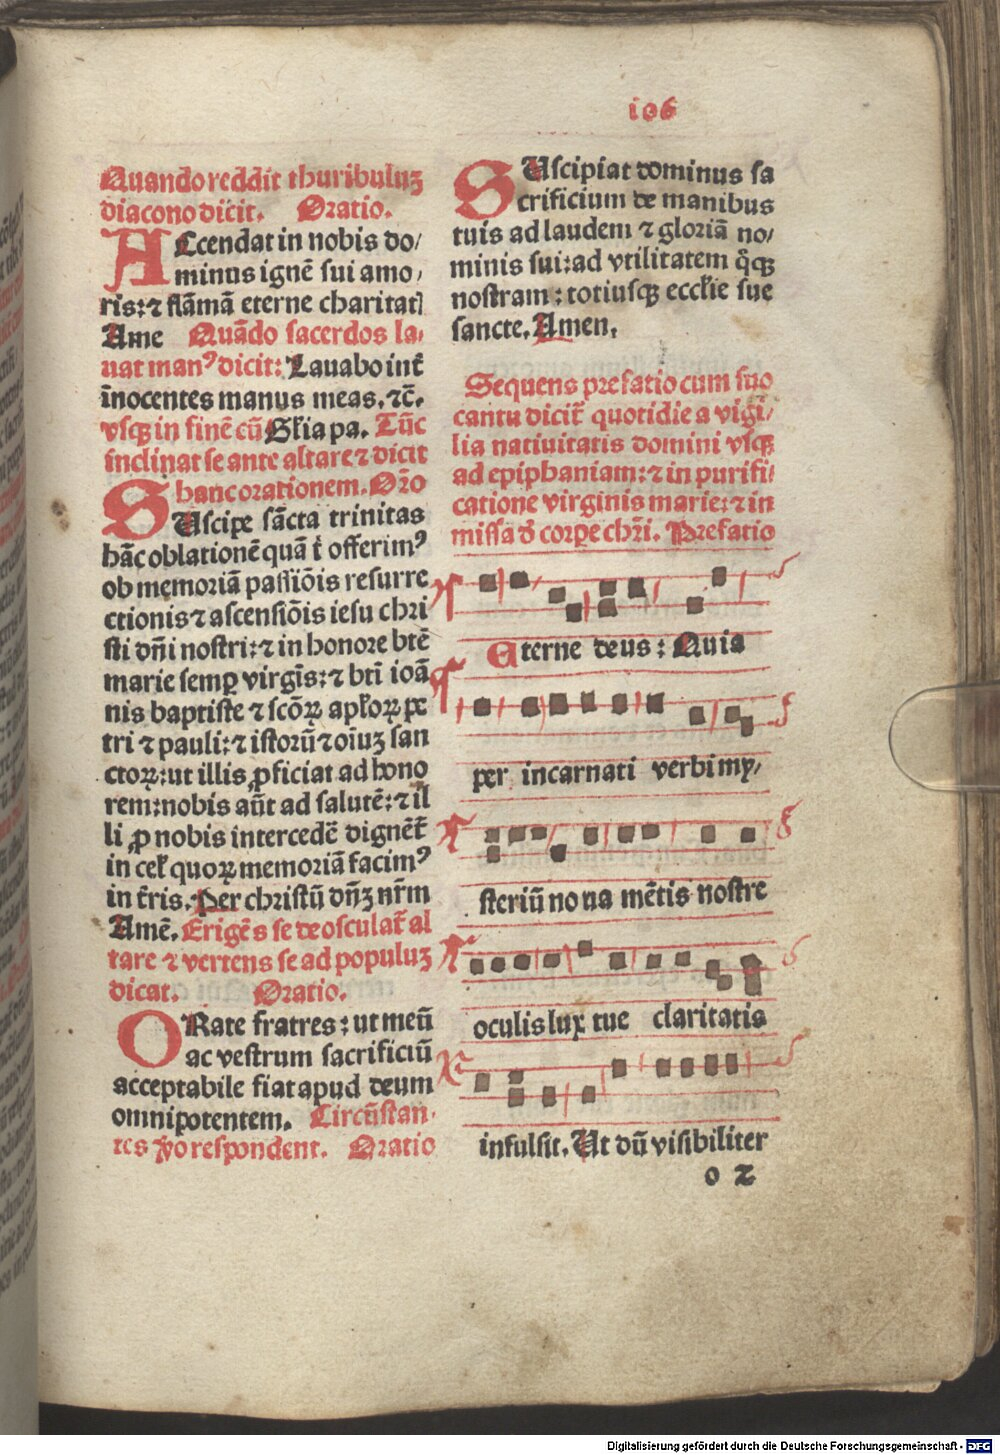 106
Quando reddit thuribuluꝫ
diacono dicit. Oratio.
ACcendat in nobis do/
minus ignē sui amo/
ris: ⁊ flāmā eterne charitatꝭ
Ame Quādo sacerdos la-
uat manꝰ dicit: Lauabo int̄
īnocentes manus meas. ⁊c̄.
vsqꝫ in finē cū Gl̄ia pa. Tūc
inclinat se ante altare ⁊ dicit
hanc orationem. Or̄o
SUscipe sācta trinitas
hāc oblationē quā t̄ offerimꝰ
ob memoriā passiōis resurre
ctionis ⁊ ascensiōis iesu chri
sti dn̄i nostri: ⁊ in honore btē
marie semꝑ virgīs: ⁊ bti̅ ioā
nis baptiste ⁊ scōꝝ apl̄oꝝ pe
tri ⁊ pauli: ⁊ istorū ⁊ oīuꝫ san
ctoꝝ: ut illis ꝓficiat ad hono
rem: nobis aūt ad salutē: ⁊ il
li ꝓ nobis intercedē dignēt̄
in cel̄ quoꝝ memoriā facimꝰ
in t̄ris. Per christū dn̄ꝫ nr̄m
Amē. Erigēs se deosculat̄ al
tare ⁊ vertens se ad populuꝫ
dicat. Oratio.
ORate fratres: ut meū
ac vestrum sacrificiū
acceptabile fiat apud deum
omnipotentem. Circūstan-
tes v̄o respondent. Oratio
SUscipiat dominus sa
crificium de manibus
tuis ad laudem ⁊ gloriā no/
minis sui: ad vtilitatem q̄qꝫ
nostram: totiusqꝫ eccl̄ie sue
sancte. Amen.
Sequens prefatio cum suo
cantu dicit̄ quotidie a vigi/
lia natiuitatis domini vsqꝫ
ad epiphaniam: ⁊ in purifi/
catione virginis marie: ⁊ in
missa d̄ corꝑe chr̄i. Prefatio
Eterne deus: Quia
per incarnati verbi my/
steriū noua mētis nostre
oculis lux tue claritatis
infulsit. Ut dū visibiliter
o 2
Digitalisierung gefördert durch die Deutsche Forschungsgemeinschaft - DFG